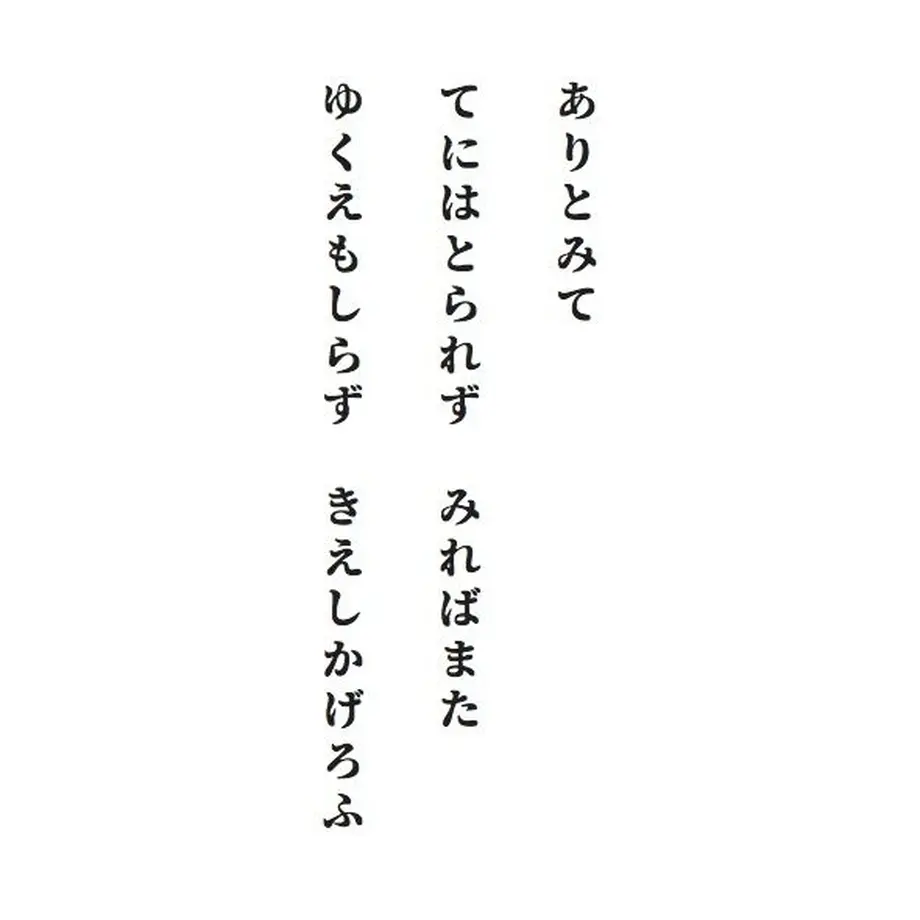 ありとみて
てにはとられず　みればまた
ゆくえもしらず　きえしかげろふ